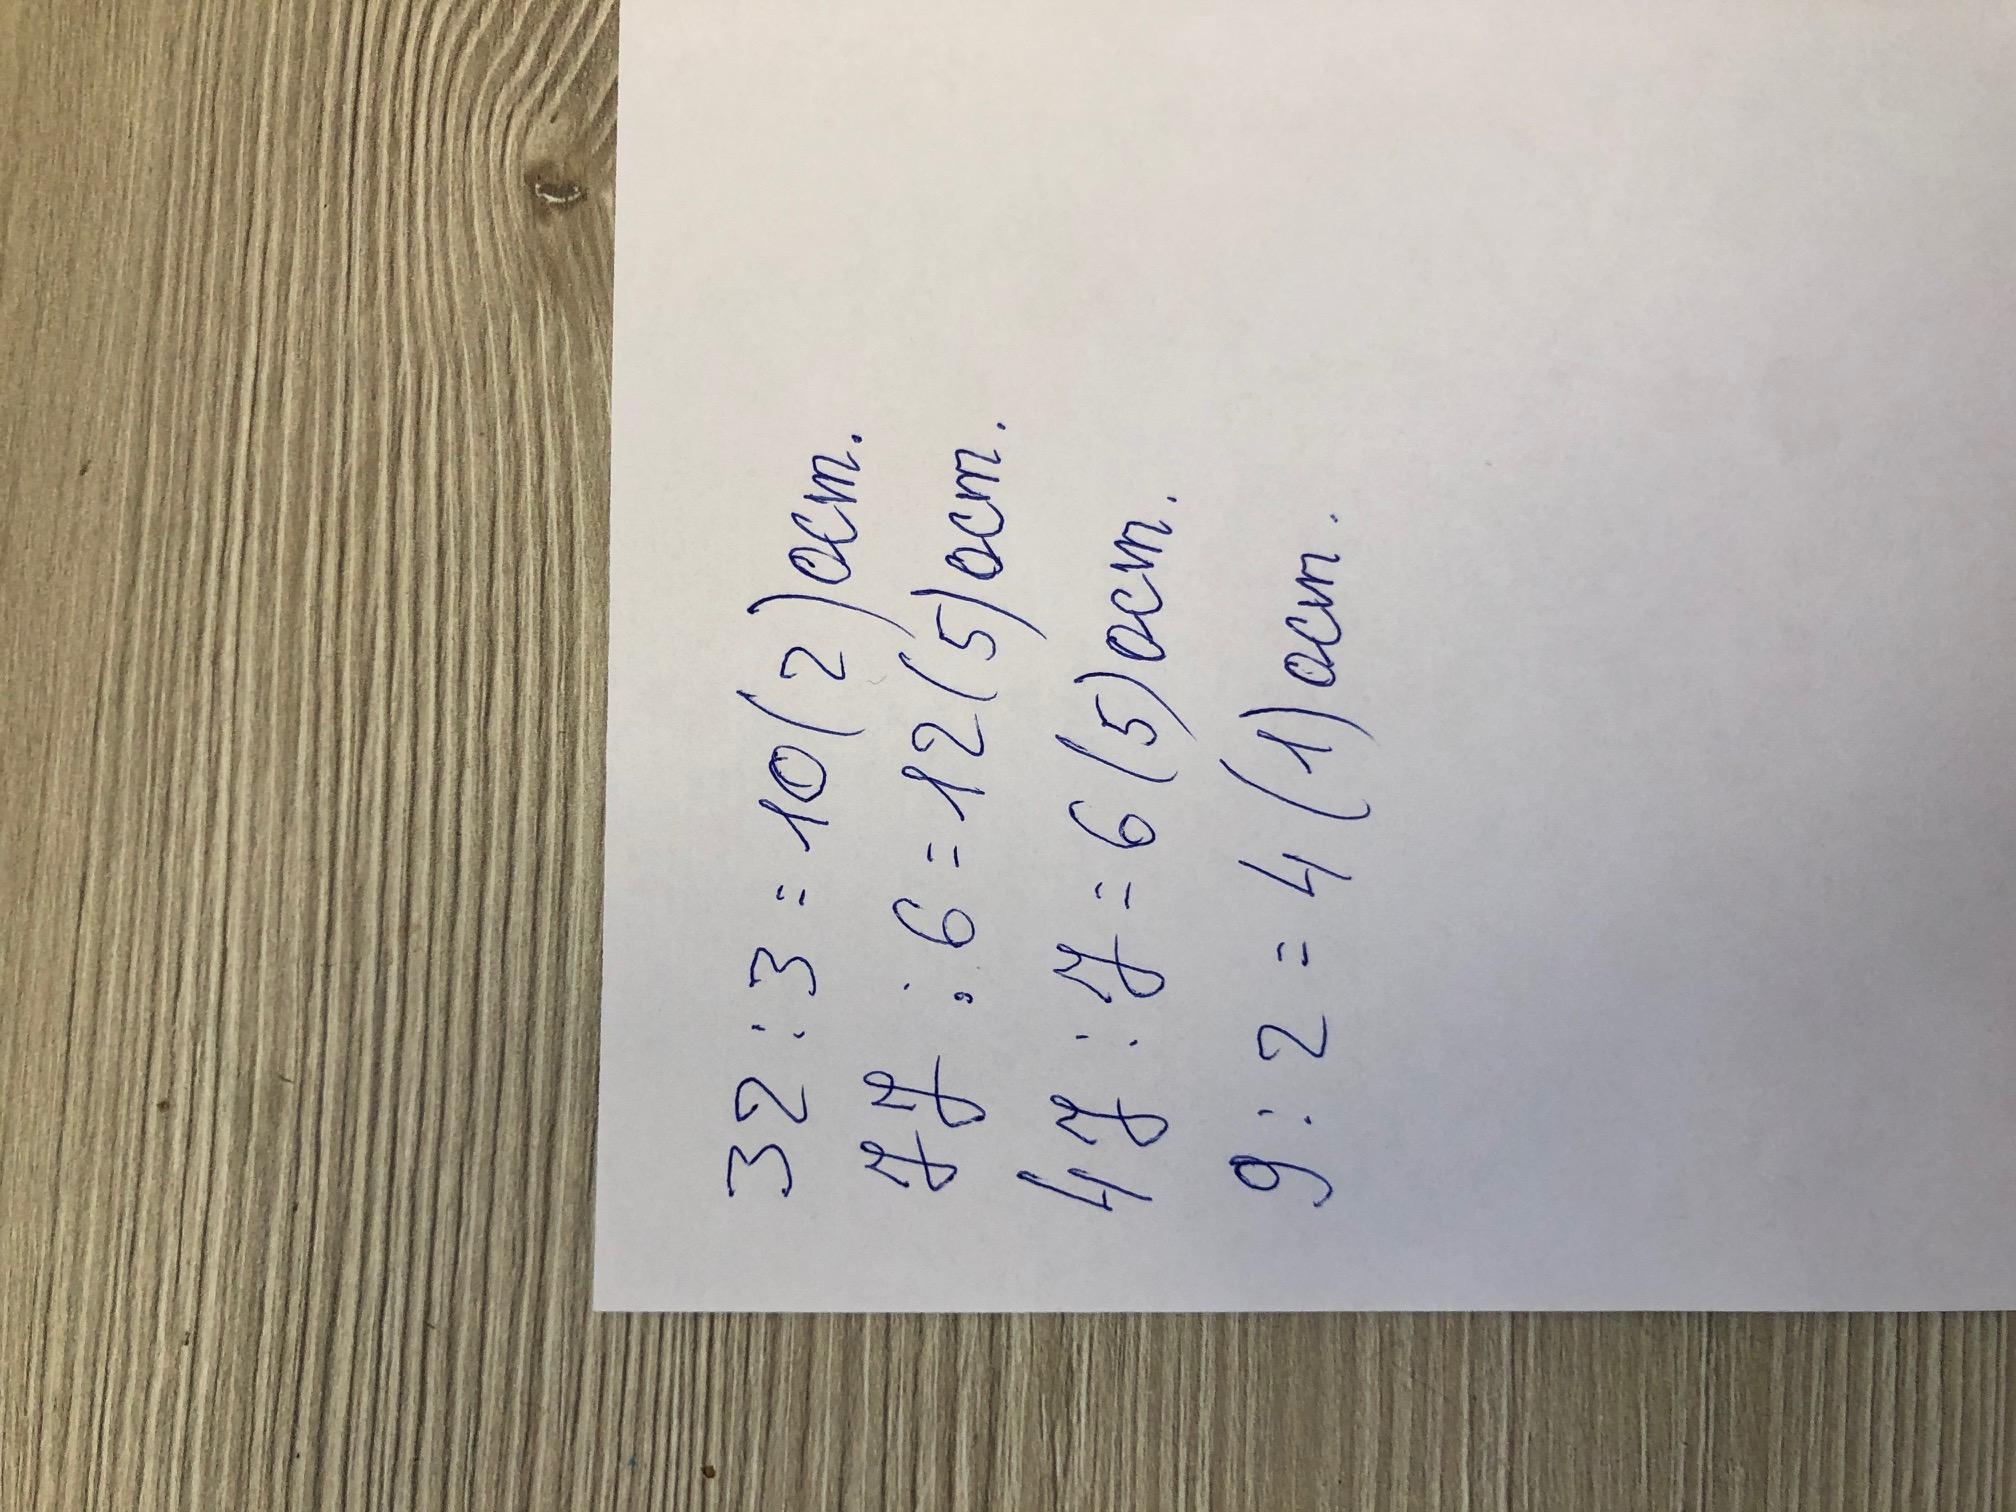 32:3=10(2)ост.
77:6=12(5)ост.
47:7=6(5)ост.
9:2=4(1)ост.